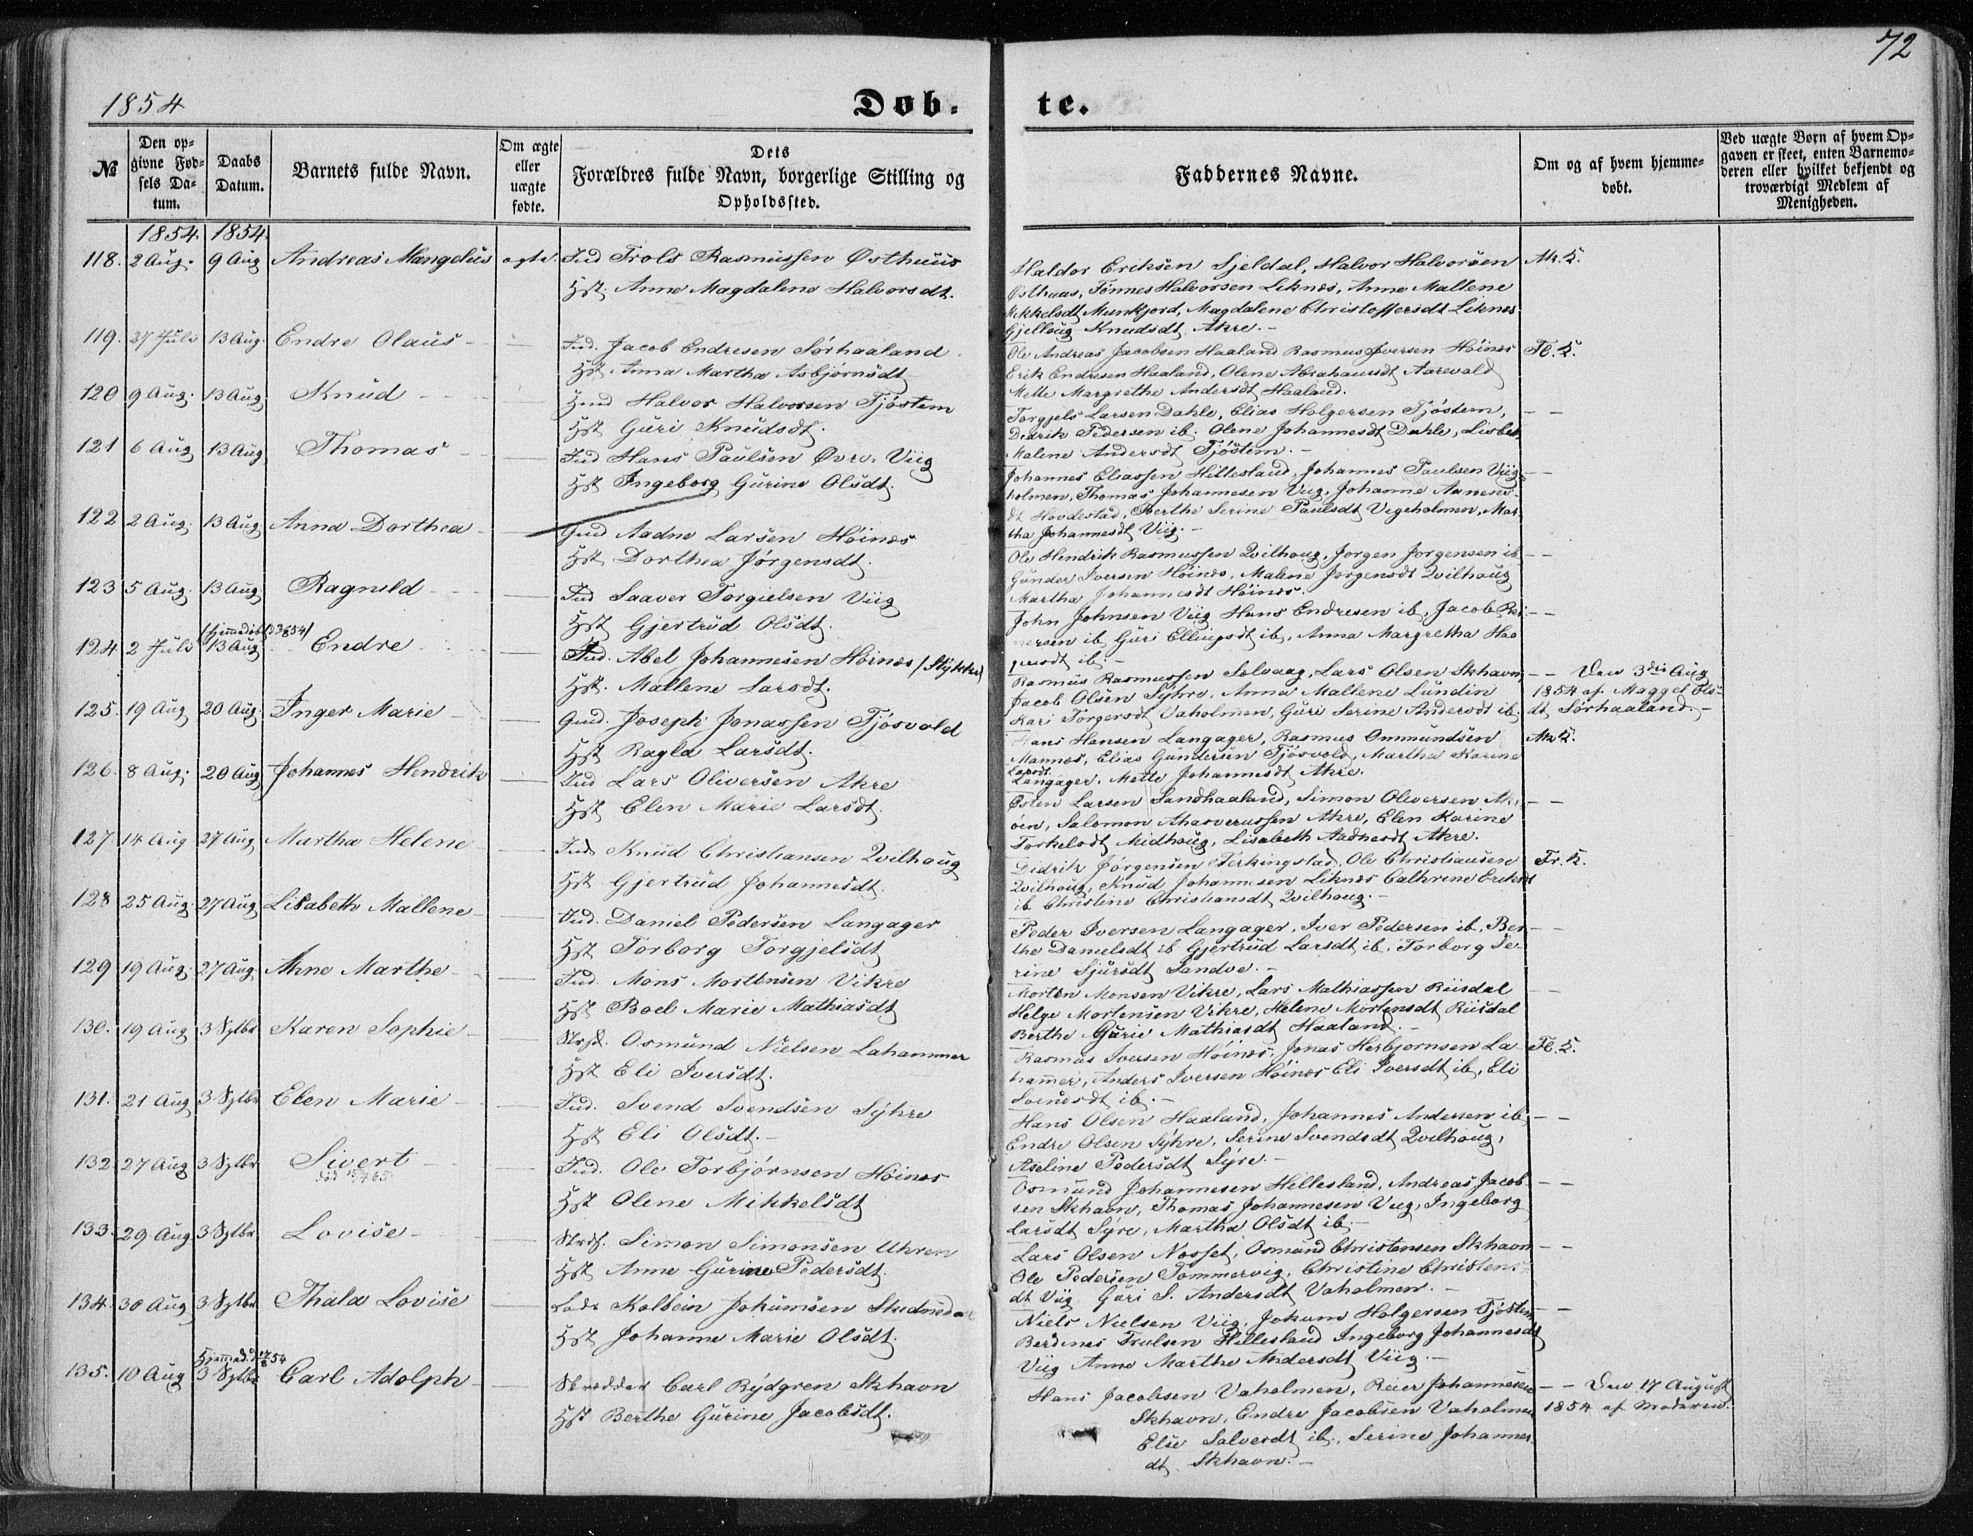 1854
Døb-
te.
72
№
Den op-
givne Fød-
sels Da-
tum.
Daabs
Datum.
Barnets fulde Navn.
Om ægte
eller
uægte
fødte.
Dets
Forældres fulde Navn, borgerlige Stilling og
Opholdssted.
Faddernes Navne.
Om og af hvem hjemme-
døbt.
Ved uægte Børn af hvem Op-
gaven er skeet, enten Barnemo-
deren eller hvilket bekjendt og
troværdigt Medlem af
Menigheden.
1854. 1854.
118. 2 Aug. 9 Aug Andreas Mangelius ægte. Trols Rasmussen Østhuus
Hst. Anne Magdalene Halvorsdt.
Haldor Eriksen Sjeldal, Halvor Halvorsen
Østhuus, Tønnes Halvorsen Liknes, Anne Mallene
Mikkelsdt Munkjord, Magdalene Christoffersdt Liknes
Gjellaug Knudsdt Akre.-
119. 27 Juli 13 Aug. Endre Olaus - — Jacob Endresen Sørhaaland
Hst. Anna Martha Asbjørnsdt
Ole Andreas Jacobsen Haaland Rasmus Iversen Høines
Erik Endresen Haaland, Olene Abrahamsdt Aarevold
Mette Margrethe Andersdt Haaland.
120 9 Aug. 13 Aug. Knud - — Halvor Halvorsen Tjøstem
Hst Guri Knudsdt.
Torgjels Larsen Dahle, Elias Holgersen Tjøstem, — —
Didrik Pedersen ib. Olene Johannesdt Dahle, Lisbet
Malene Andersdt Tjöstem.-
121 6 Aug 13 Aug Thomas - — Hans Paulsen Øvre Viig
Hst Ingeborg Gurine Olsdt.
Johannes Eliassen Hillesland, Johannes Paulsen Viig- — —
holmen, Thomas Johannesen Viig, Johanne Aanens-
dt Hovdestad, Berthe Serine Paulsdt Vigeholmen, Mar-
tha Johannesdt Viig.-
122 2 Aug. 13 Aug Anna Dorthea - — Aadne Larsen Høines
Hst Dorthea Jørgensdt.
Ole Hendrik Rasmussen Qvilhoug, Jørgen Jørgensen ib — —
Gunder Iversen Høines, Malene Jørgensdt Qvilhoug
Martha Johannesdt Høines.
123 5 Aug. 13 Aug. Ragnild - — Saaver Torgielsen Viig
Hst Gjertrud Olsdt.
John Johnsen Viig Hans Endresen ib, Jacob Rei- — —
nersen ib Guri Ellingsdt ib, Anna Margretha
124 2 Juli 13 Aug Endre - — Abel Johannesen Høines /Stykke/
Hst. Mallene Larsdt.
Rasmus Rasmussen Solvaag, Lars Olsen Skhavn, — — Den 3die Aug
Jacob Olsen Syhre, Anna Mallene Lundin 1854 af Maggel Ols-
Kari Torgersdt Vaholmen, Guri Serine Andersdt ib. dt Sørhaaland.-
125. 19 Aug 20 Aug. Inger Marie - — Joseph Jonassen Tjösvold
Hst Ragla Larsdt.
Hans Hansen Langager, Rasmus Ommundsen
Mannes, Elias Gundersen Tjøsvold, Martha Karine
Larsdt
Langager, Mette Johannesdt Akre.
126. 8 Aug. 20 Aug Johannes Hendrik — Lars Oliversen Akre
Hst Elen Marie Larsdt.
Østen Larsen Sandhaaland, Simon Oliversen — —
øen, Salomon Ahasverussen Akre, Elen Karine
Torkelsdt Midhoug, Lisabeth Aadnesdt Akre.
127. 14 Aug 27 Aug Martha Helene - — Knud Christiansen Qvilhoug
Hst Gjertrud Johannesdt.
Didrik Jørgensen Ferkingstad, Ole Christiansen
Qvilhoug, Knud Johannesen Liknes Cathrine Eriksdt
ib Christine Christiansdt Qvilhoug.-
128 25 Aug. 27 Aug Lisabeth Mallene - — Daniel Pedersen Langager
Hst Torborg Torgjelsdt
Peder Iversen Langager, Iver Pedersen ib, Ber- — —
the Danielsdt ib Gjertrud Larsdt ib, Torborg Se-
rine Sjursdt Sandve.-
129 19 Aug 27 Aug. Anne Marthe - — Mons Mortensen Vikre
Hst Boel Marie Mathiasdt
Morten Monsen Vikre, Lars Mathiassen Riisdal — —
Helge Mortensen Vikre, Helene Mortensdt Riisdal
Berthe Gurie Mathiasdt Haaland.-
130. 19 Aug 3 Sptbr Karen Sophie - — Osmund Nielsen Lahammer
Hst Eli Iversdt.
Rasmus Iversen Høines, Jonas Herbjørnsen La-
hammer, Anders Iversen Høines Eli Iversdt ib, Eli
Svendsdt ib.-
131. 21 Aug 3 Sptbr Elen Marie - — Svend Svendsen Syhre
Hst Eli Olsdt.-
Hans Olsen Haaland, Johannes Andersen ib — —
Endre Olsen Syhre, Serine Svendsdt Qvilhoug,
Aseline Pedersdt Syre.-
132 27 Aug 3 Sptbr Sivert - — Ole Torbjørnsen Høines
Hst Olene Mikkelsdt
Osmund Johannesen Hillesland, Andreas Jacob- — —
sen Skhavn, Thomas Johannesen Viig, Ingeborg
Larsdt Syre, Martha Olsdt ib.-
133. 29 Aug 3 Sptbr. Lovise - — Simon Simonsen Uhren
Hst Anne Gurine Pedersdt.
Lars Olsen Nosset, Osmund Christensen Skhavn — —
Ole Pedersen Tømmervig, Christine Christens-
dt Viig Guri S. Andersdt Vaholmen.-
134. 30 Aug 3 Sptbr Thala Lovise — Kolbein Johansen
Hst Johanne Marie Olsdt.
Niels Nielsen Viig, Johan Holgersen Tjøstem — —
Berdines Trulsen Hillesland Ingeborg Johannesdt
Viig Anne Marthe Andersdt Viig.-
135. 10 Aug 3 Sptbr Carl Adolph - — Skrædder Carl Rydgren Skhavn
Hst Berthe Gurine Jacobsdt.
Hans Jacobsen Vaholmen, Reier Johannesen — — Den 17 August
Skhavn, Endre Jacobsen Vaholmen 1854 af Moderen.
Else Salvesdt ib., Serine Johannes-
dt Skhavn.-